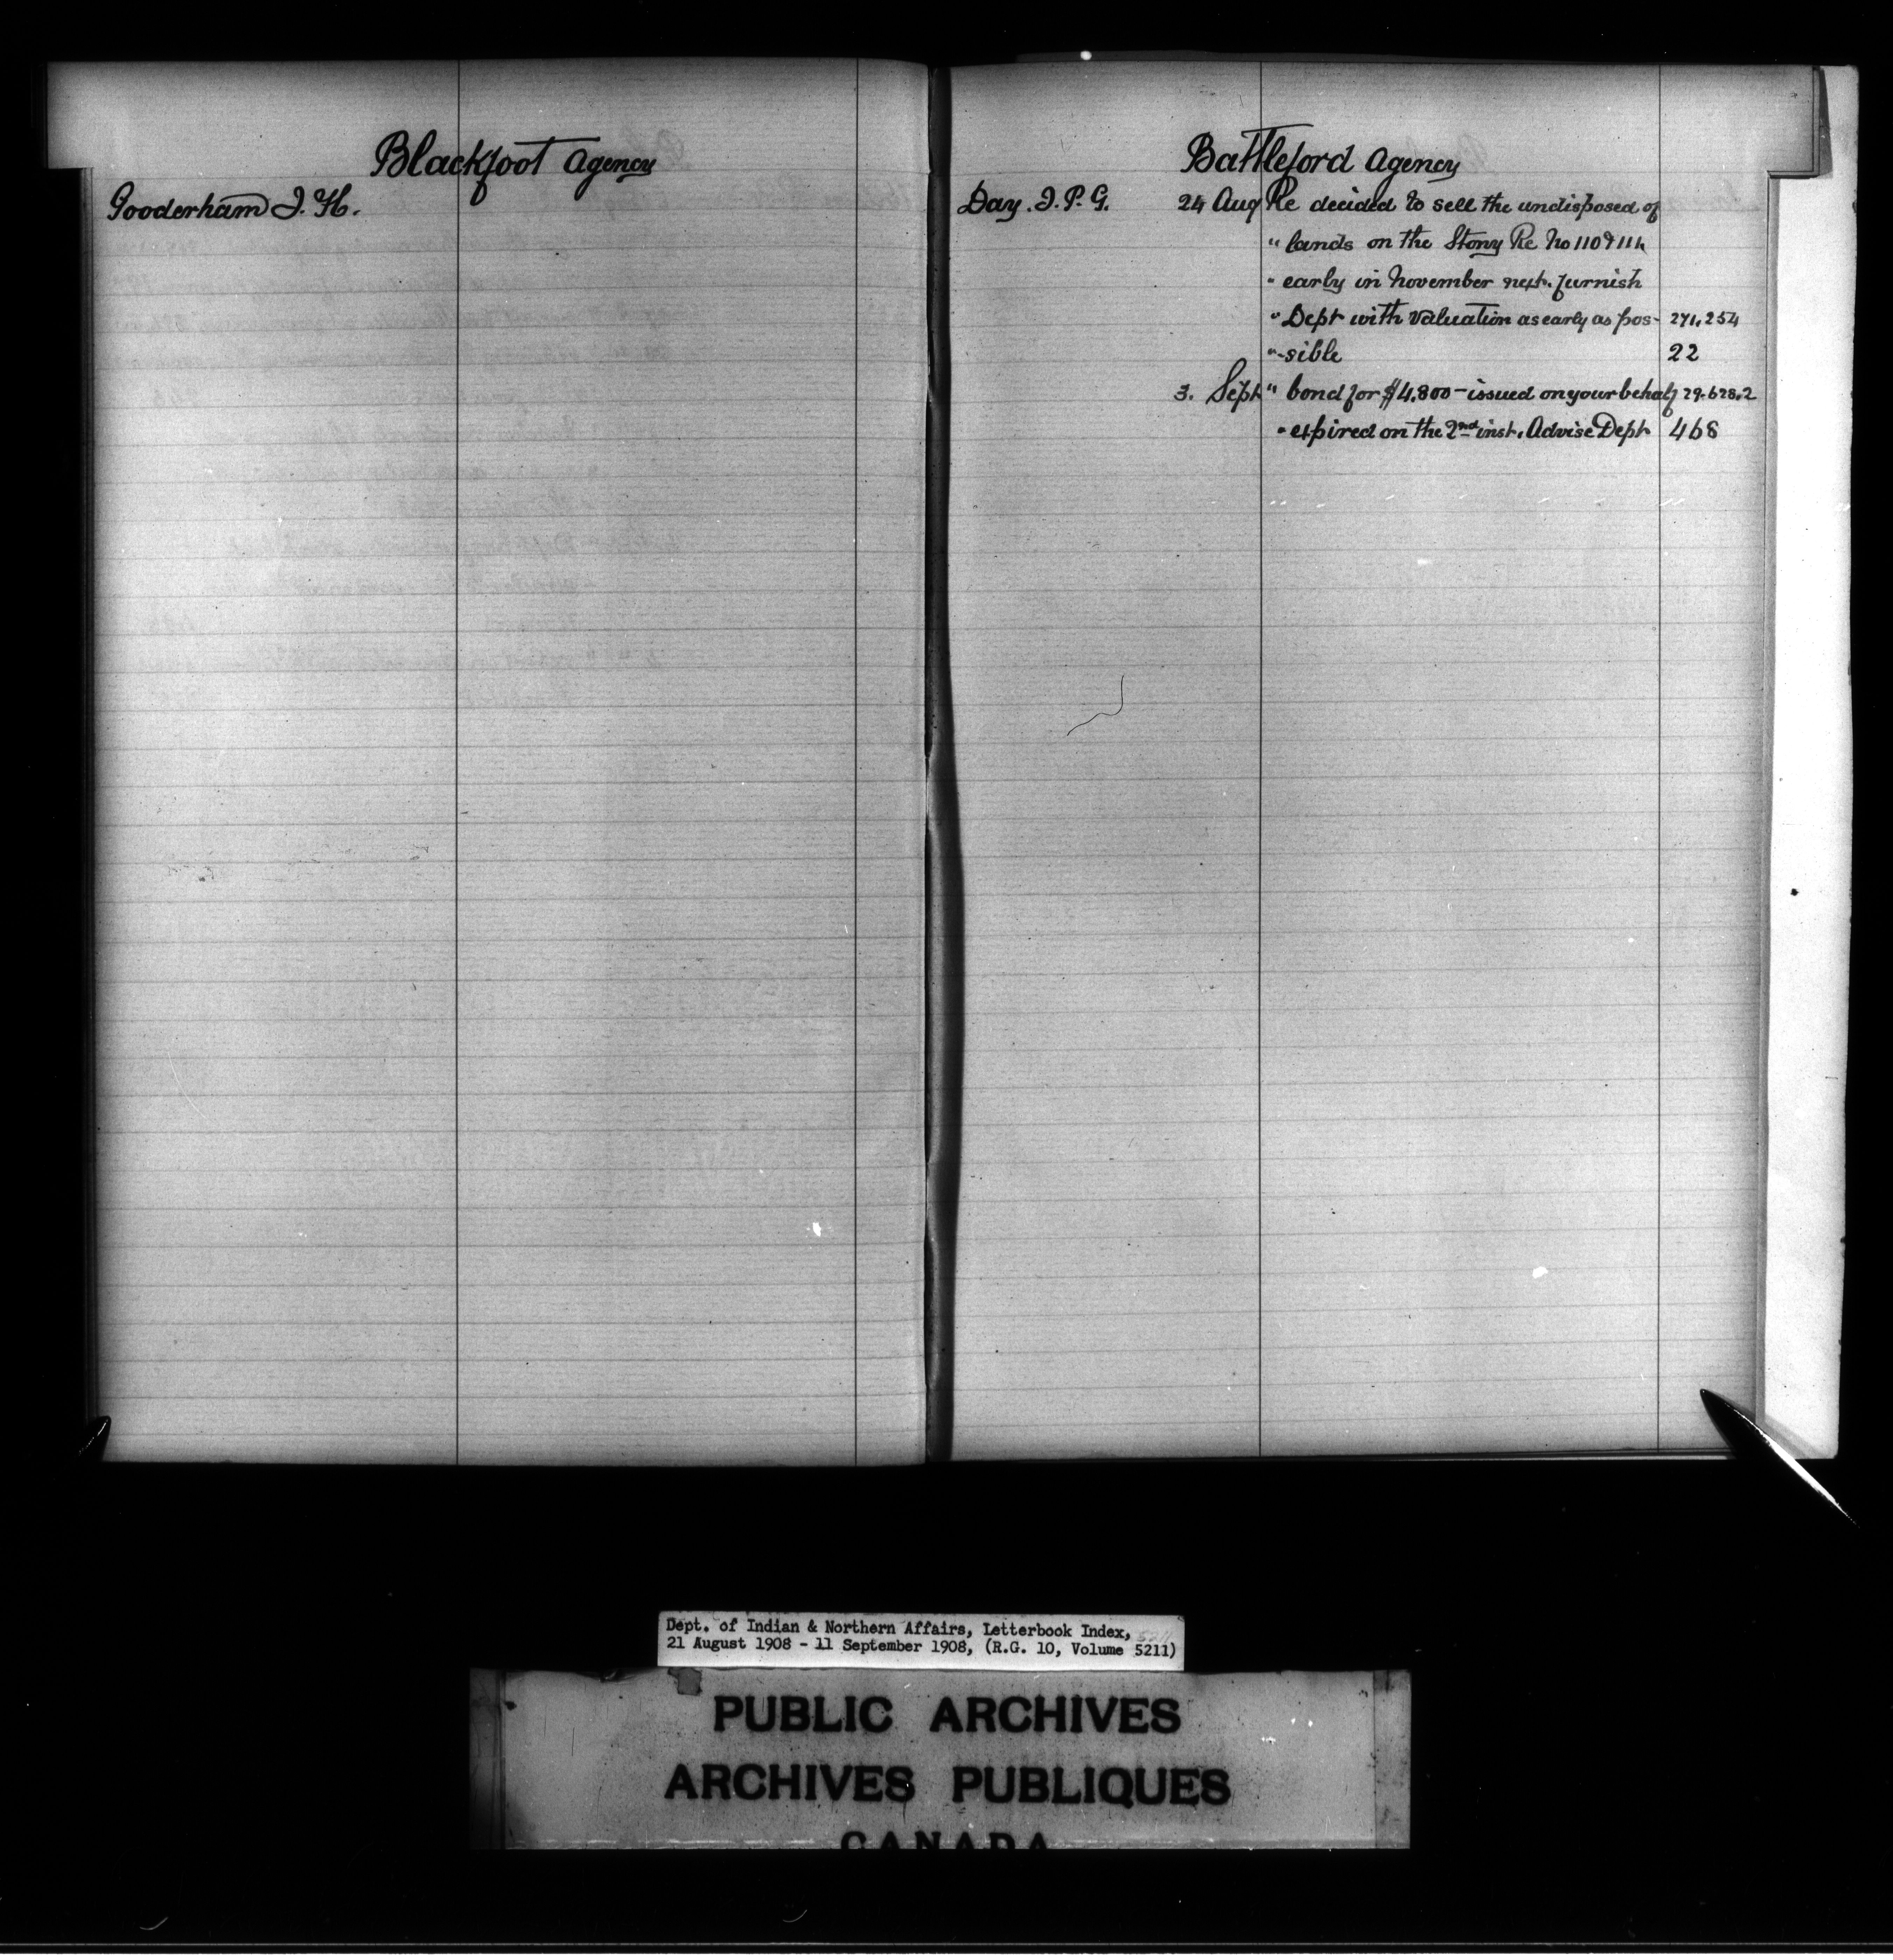 Blackfoot Agency
Gooderham J. H.
Battleford Agency
Day. J. P. G. 24 Aug Re decided to sell the undisposed of
" lands on the Stony Re No 110 & 111,
" early in November next. furnish
" Dept with valuation as early as pos- 271,254
"-sible 22
3. Sept " bond for $4,800 - issued on your behalf 29.628.2
" expired on the 2nd inst. Advise Dept 468
Dept. of Indian & Northern Affairs, Letterbook Index,
21 August 1908 - 11 September 1908, (R.G. 10, Volume 5211)
PUBLIC ARCHIVES
ARCHIVES PUBLIQUES
CANADA